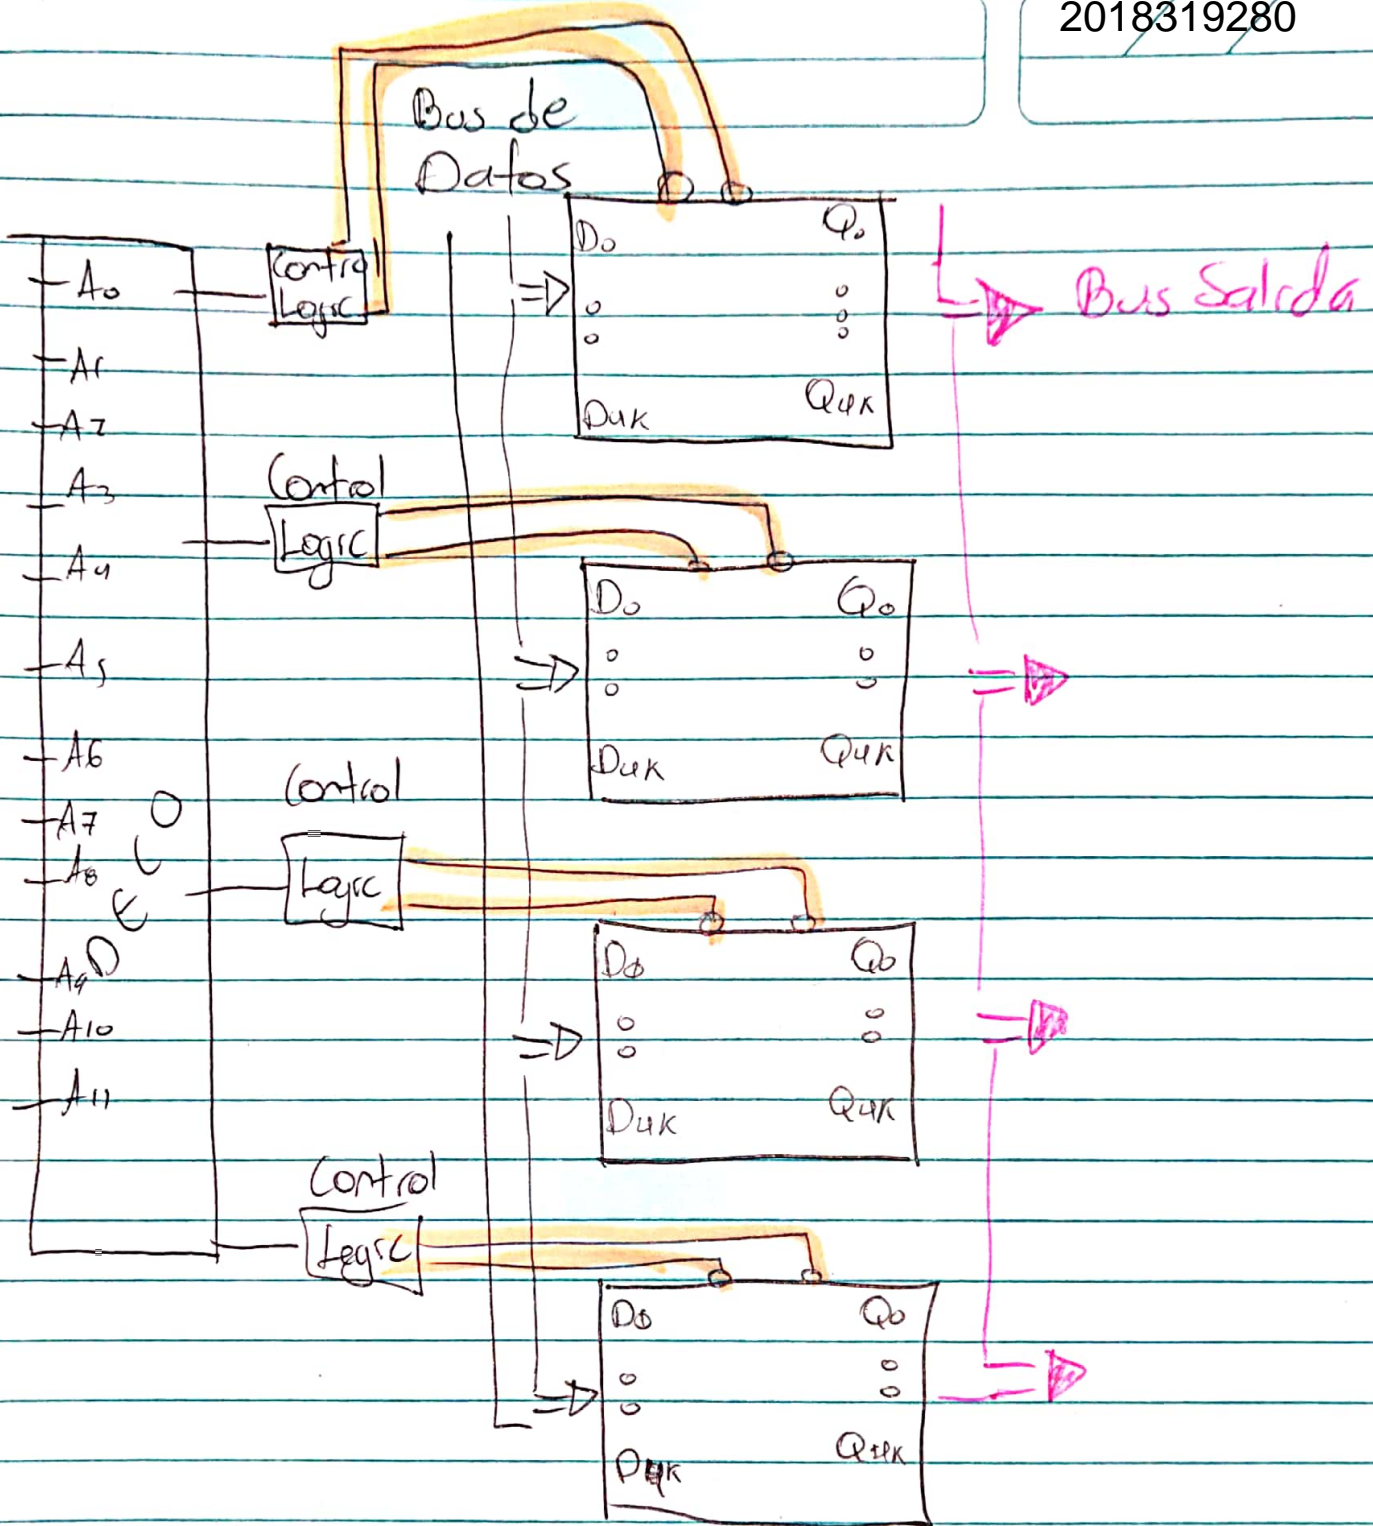 2018319280
Bus de
Datos
A0
A1
A2
A3
A4
A5
A6
A7
A8
A9
A10
A11
DECO
Control
Logic
D0
Q0
D4K
Q4K
Bus Salida
Control
Logic
D0
Q0
D4K
Q4K
Control
Logic
D0
Q0
D4K
Q4K
Control
Logic
D0
Q0
D4K
Q4K